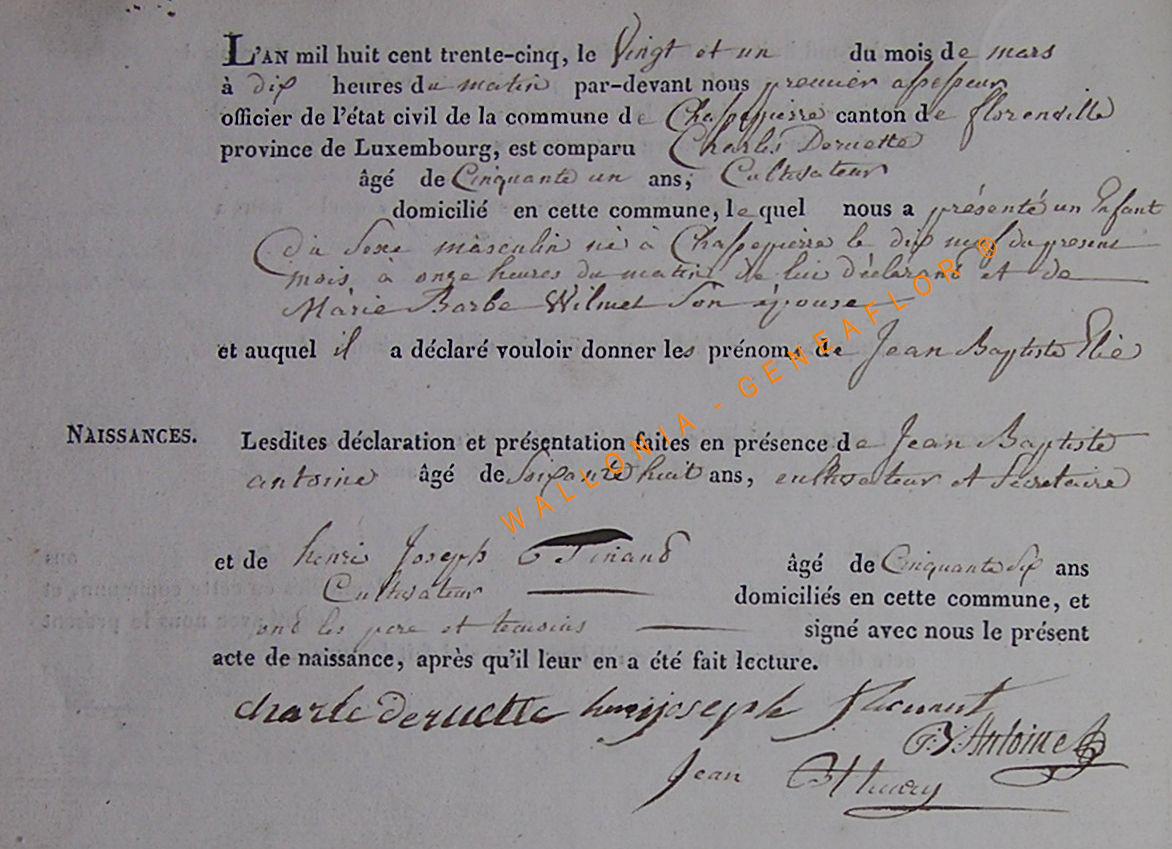 L'AN mil huit cent trente-cinq, le Vingt et un du mois de mars
à dix heures du matin par-devant nous premier assesseur
officier de l'état civil de la commune de Chassepierre canton de florenville
province de Luxembourg, est comparu Charles Deruette
âgé de Cinquante un ans, Cultivateur
domicilié en cette commune, lequel nous a présenté un Enfant
Du Sexe masculin né à Chassepierre le dix neuf du présent
mois à onze heures du matin de lui déclarant et de
Marie Barbe Wilmet Son épouse
et auquel il a déclaré vouloir donner les prénoms de Jean Baptiste Elie
NAISSANCES.
Lesdites déclaration et présentation faites en présence de Jean Baptiste
antoine âgé de Soixante huit ans, cultivateur et Secretaire
et de henri Joseph âgé de Cinquante Six ans
Cultivateur domiciliés en cette commune, et
ont les pere et temoins signé avec nous le présent
acte de naissance, après qu'il leur en a été fait lecture.
charle Deruette henrij joseph
Antoine
Jean
WALLONIA - GENEAFLOR ®